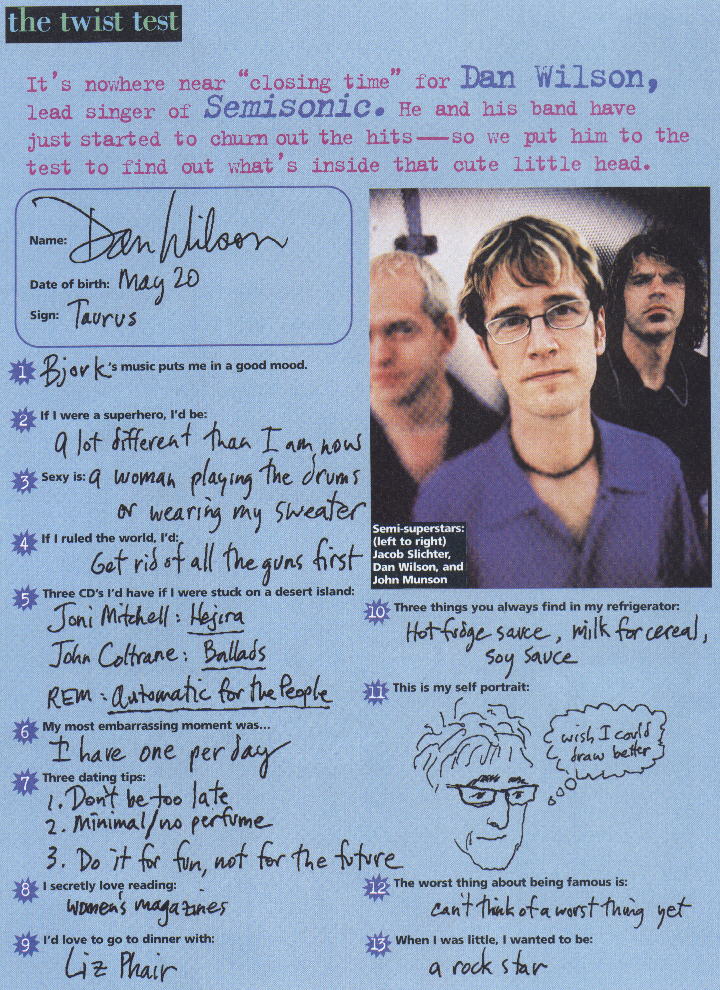 the twist test
It's nowhere near "closing time" for Dan Wilson,
lead singer of Semisonic. He and his band have
just started to churn out the hits—so we put him to the
test to find out what's inside that cute little head.
Name: Dan Wilson
Date of birth: May 20
Sign: Taurus
1 Bjork's music puts me in a good mood.
2 If I were a superhero, I'd be:
a lot different than I am now
3 Sexy is: a woman playing the drums
or wearing my sweater
4 If I ruled the world, I'd:
Get rid of all the guns first
5 Three CD's I'd have if I were stuck on a desert island:
Joni Mitchell: Hejira
John Coltrane: Ballads
REM: Automatic for the People
6 My most embarrassing moment was...
I have one per day
7 Three dating tips:
1. Don't be too late
2. Minimal/no perfume
3. Do it for fun, not for the future
8 I secretly love reading:
women's magazines
9 I'd love to go to dinner with:
Liz Phair
Semi-superstars:
(left to right)
Jacob Slichter,
Dan Wilson, and
John Munson
10 Three things you always find in my refrigerator:
Hot fudge sauce, milk for cereal,
soy sauce
11 This is my self portrait:
wish I could
draw better
12 The worst thing about being famous is:
can't think of a worst thing yet
13 When I was little, I wanted to be:
a rock star